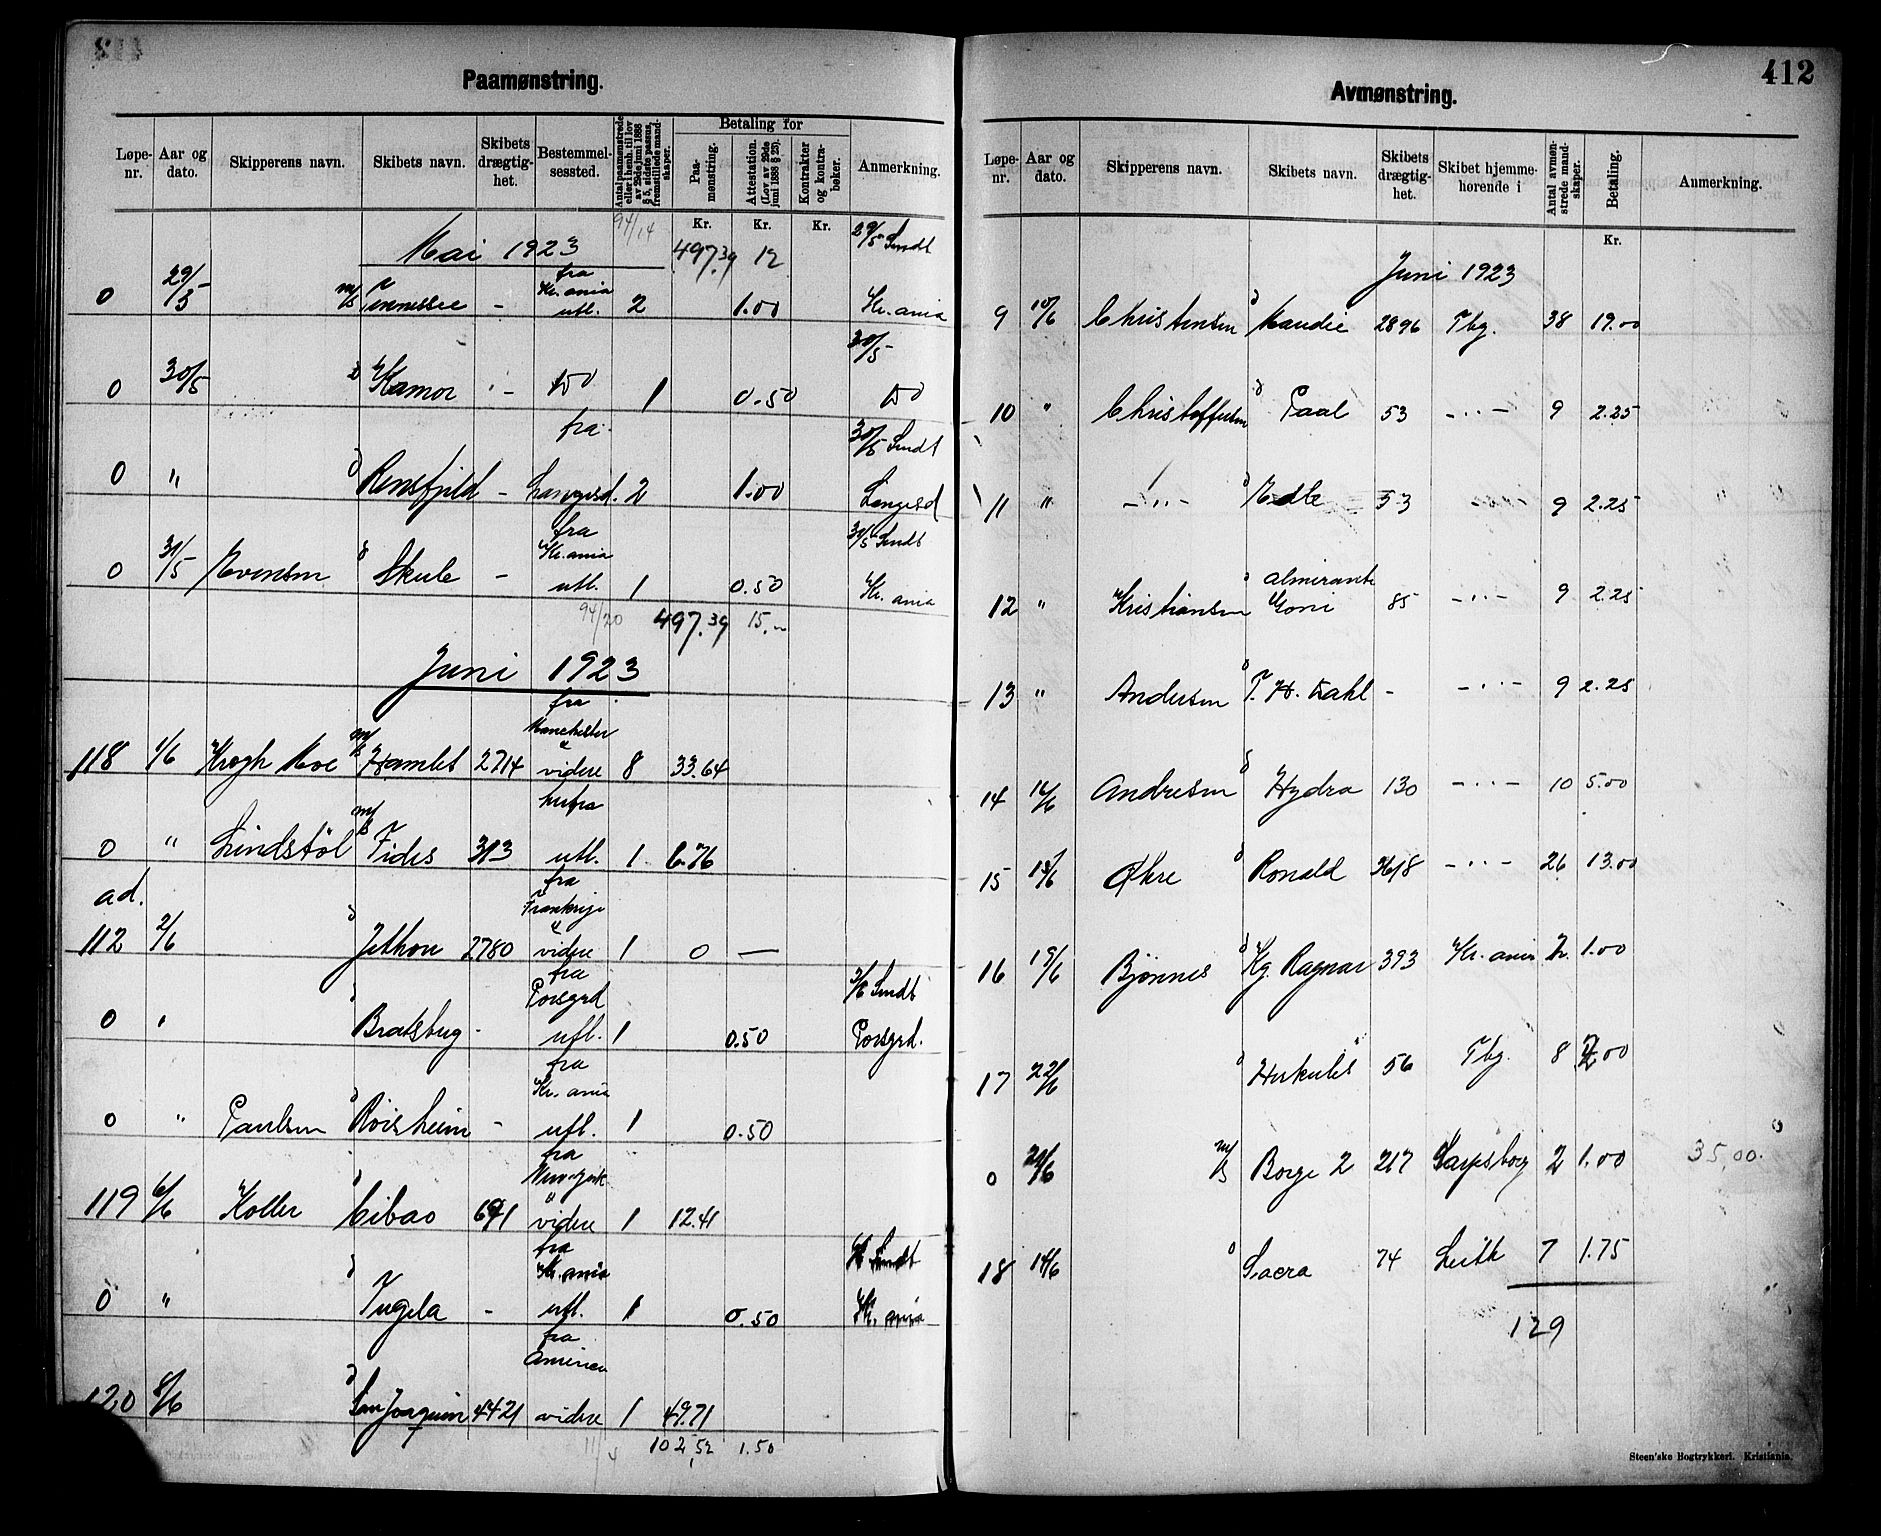 412
Paamønstring.
Løpe-nr. Aar og dato. Skipperens navn. Skibets navn. Skibets drægtig-het. Bestemmel-sessted. Antal paamønstrede eller i henh. til lov av 29de juni 1888 § 5, sidste passus, fremstillede mand-skaper. Betaling for Paa-mønstring. Attestation. (Lov av 29de juni 1888 § 23). Kontrakter og kontra-bøker. Anmerkning.
Kr. Kr. Kr.
94/14
Mai 1923 497.39 12 29/5 Sendt
fra Kr.ania
0 29/5 m/s Tennessee - utl. 2 1.00 Kr.ania
30/5
0 30/5 Kamor - do 1 0.50 do
fra 30/5 Sendt
0 " Rensfjeld - Langesd. 2 1.00 Langesd
fra Kr.ania 31/5 Sendt
0 31/5 Evensen Skule - utl. 1 0.50 Kr.ania
94/20 497.39 15.-
Juni 1923
fra Manchester
118 1/6 Krogh Moe m/s Hamlet 2714 videre 8 33.64
herfra
0 " Lindstøl m/s Fides 313 utl. 1 6.76
ad. fra Frankrige
112 2/6 Jethou 2780 videre 1 0 —
fra Porsgrd Sendt
0 " Bratsberg - utl. 1 0.50 Porsgrd.
fra Kr.ania
0 " Paulsen Røisheim - utl. 1 0.50
fra Newyork
119 6/6 Koller Cibao 691 videre 1 12.41
fra Kr.ania Sendt
0 " Tugela - utl. 1 0.50 Kr.ania
fra America
120 8/6 San Joaquin 4421 videre 1 49.71
102,52 1.50
Avmønstring.
Løpe-nr. Aar og dato. Skipperens navn. Skibets navn. Skibets drægtig-het. Skibet hjemme-hørende i Antal avmøn-strede mand-skaper. Betaling. Anmerkning.
Kr.
Juni 1923
9 10/6 Christensen Maudie 2896 Tbg. 38 19.00
10 " Christoffersen Paal 53 -"- 9 2.25
11 " -"- Edle 53 -"- 9 2.25
12 " Kristiansen Almirante Goni 85 -"- 9 2.25
13 " Andersen T. H. Dahl - -"- 9 2.25
14 Andresen Hydra 130 -"- 10 5.00
15 Øhre Ronald 3618 -"- 26 13.00
16 19/6 Bjønnes Kg. Ragnar 393 Kr.ania 2 1.00
17 22/6 Herkules 56 Tbg. 8 2.00
0 m/s Borge 2 217 Sarpsborg 2 1.00 35,00.
18 14/6 Sacra 74 Leith 7 1.75
129
Steen'ske Bogtrykkeri. Kristiania.